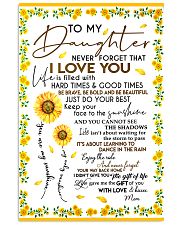 TO MY
Daughter
NEVER FORGET THAT
I LOVE YOU
life is filled with
HARD TIMES & GOOD TIMES
BE BRAVE, BE BOLD AND BE BEAUTIFUL
JUST DO YOUR BEST
Keep your
face to the sunshine
AND YOU CANNOT SEE
THE SHADOWS
Life isn't about waiting for
the storm to pass
IT'S ABOUT LEARNING TO
DANCE IN THE RAIN
Enjoy the ride
And never forget
YOUR WAY BACK HOME
I DIDN'T GIVE YOU the gift of life
Life gave me the GIFT of you
WITH LOVE & kisses
Mom